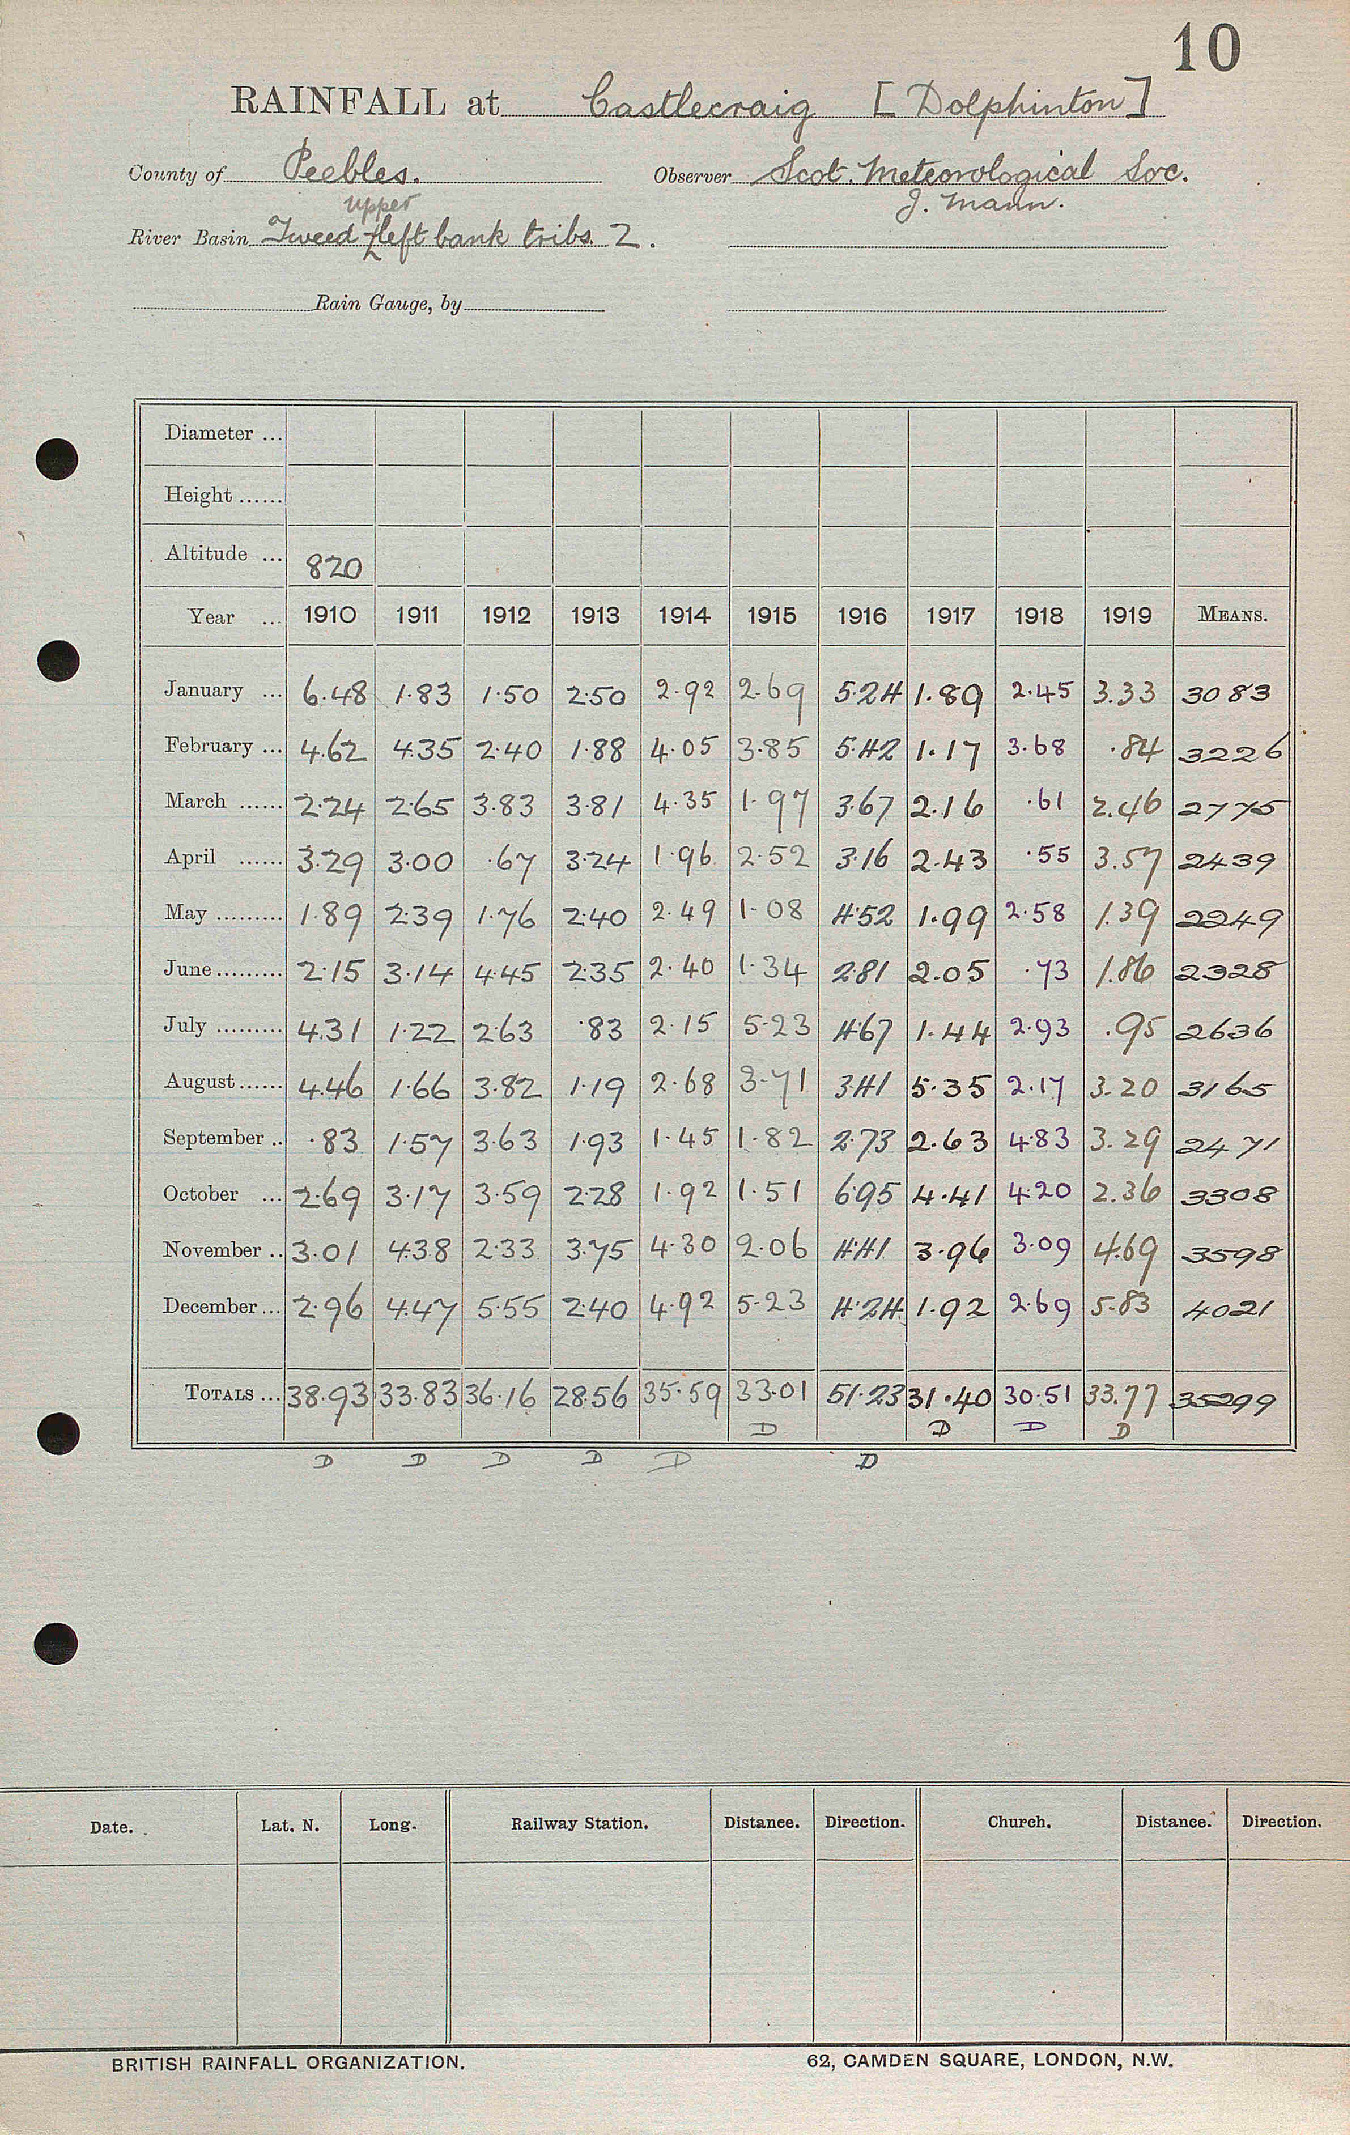 10
RAINFALL at Castlecraig [Dolphinton]
County of Peebles. Observer Scot. Meteorological Soc.
upper J. Mann.
River Basin Tweed left bank tribs. 2.
Rain Gauge, by
Diameter ...
Height ......
Altitude ... 820
Year ... 1910 1911 1912 1913 1914 1915 1916 1917 1918 1919 MEANS.
January ... 6.48 1.83 1.50 2.50 2.92 2.69 5.24 1.89 2.45 3.33 3083
February ... 4.62 4.35 2.40 1.88 4.05 3.85 5.42 1.17 3.68 .84 3226
March ...... 2.24 2.65 3.83 3.81 4.35 1.97 3.67 2.16 .61 2.46 2775
April ...... 3.29 3.00 .67 3.24 1.96 2.52 3.16 2.43 .55 3.57 2439
May ......... 1.89 2.39 1.76 2.40 2.49 1.08 4.52 1.99 2.58 1.39 2249
June ......... 2.15 3.14 4.45 2.35 2.40 1.34 2.81 2.05 .73 1.86 2328
July ......... 4.31 1.22 2.63 .83 2.15 5.23 4.67 1.44 2.93 .95 2636
August ...... 4.46 1.66 3.82 1.19 2.68 3.71 3.41 5.35 2.17 3.20 3165
September .. .83 1.57 3.63 1.93 1.45 1.82 2.73 2.63 4.83 3.29 2471
October ... 2.69 3.17 3.59 2.28 1.92 1.51 6.95 4.41 4.20 2.36 3308
November .. 3.01 4.38 2.33 3.75 4.30 2.06 4.41 3.96 3.09 4.69 3598
December ... 2.96 4.47 5.55 2.40 4.92 5.23 4.24 1.92 2.69 5.83 4021
TOTALS ... 38.93 33.83 36.16 28.56 35.59 33.01 51.23 31.40 30.51 33.77 35299
D D D D
D D D D D D
Date. Lat. N. Long. Railway Station. Distance. Direction. Church. Distance. Direction.
BRITISH RAINFALL ORGANIZATION. 62, CAMDEN SQUARE, LONDON, N.W.